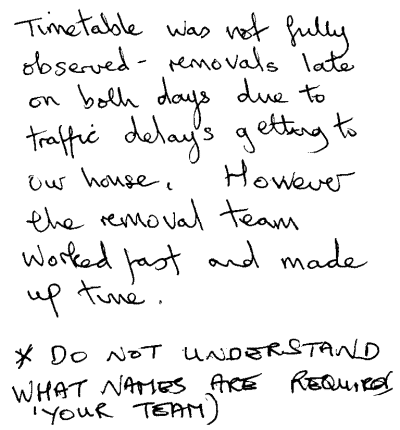 Timetable was not fully
observed - removals late
on both days due to
traffic delays getting to
our house. However
the removal team
worked fast and made
up time.
* DO NOT UNDERSTAND
WHAT NAMES ARE REQUIRED
'YOUR TEAM)